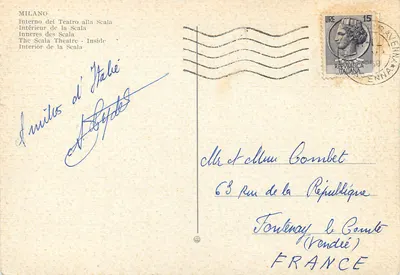 MILANO
Interno del Teatro alla Scala
Intérieur de la Scala
Inneres der Scala
The Scala Theatre - Inside
Interior de la Scala
15
Amitiés d'Italie
Mr et Mme Combet
63 Rue de la République
Fontenay le Comte
(Vendée)
FRANCE